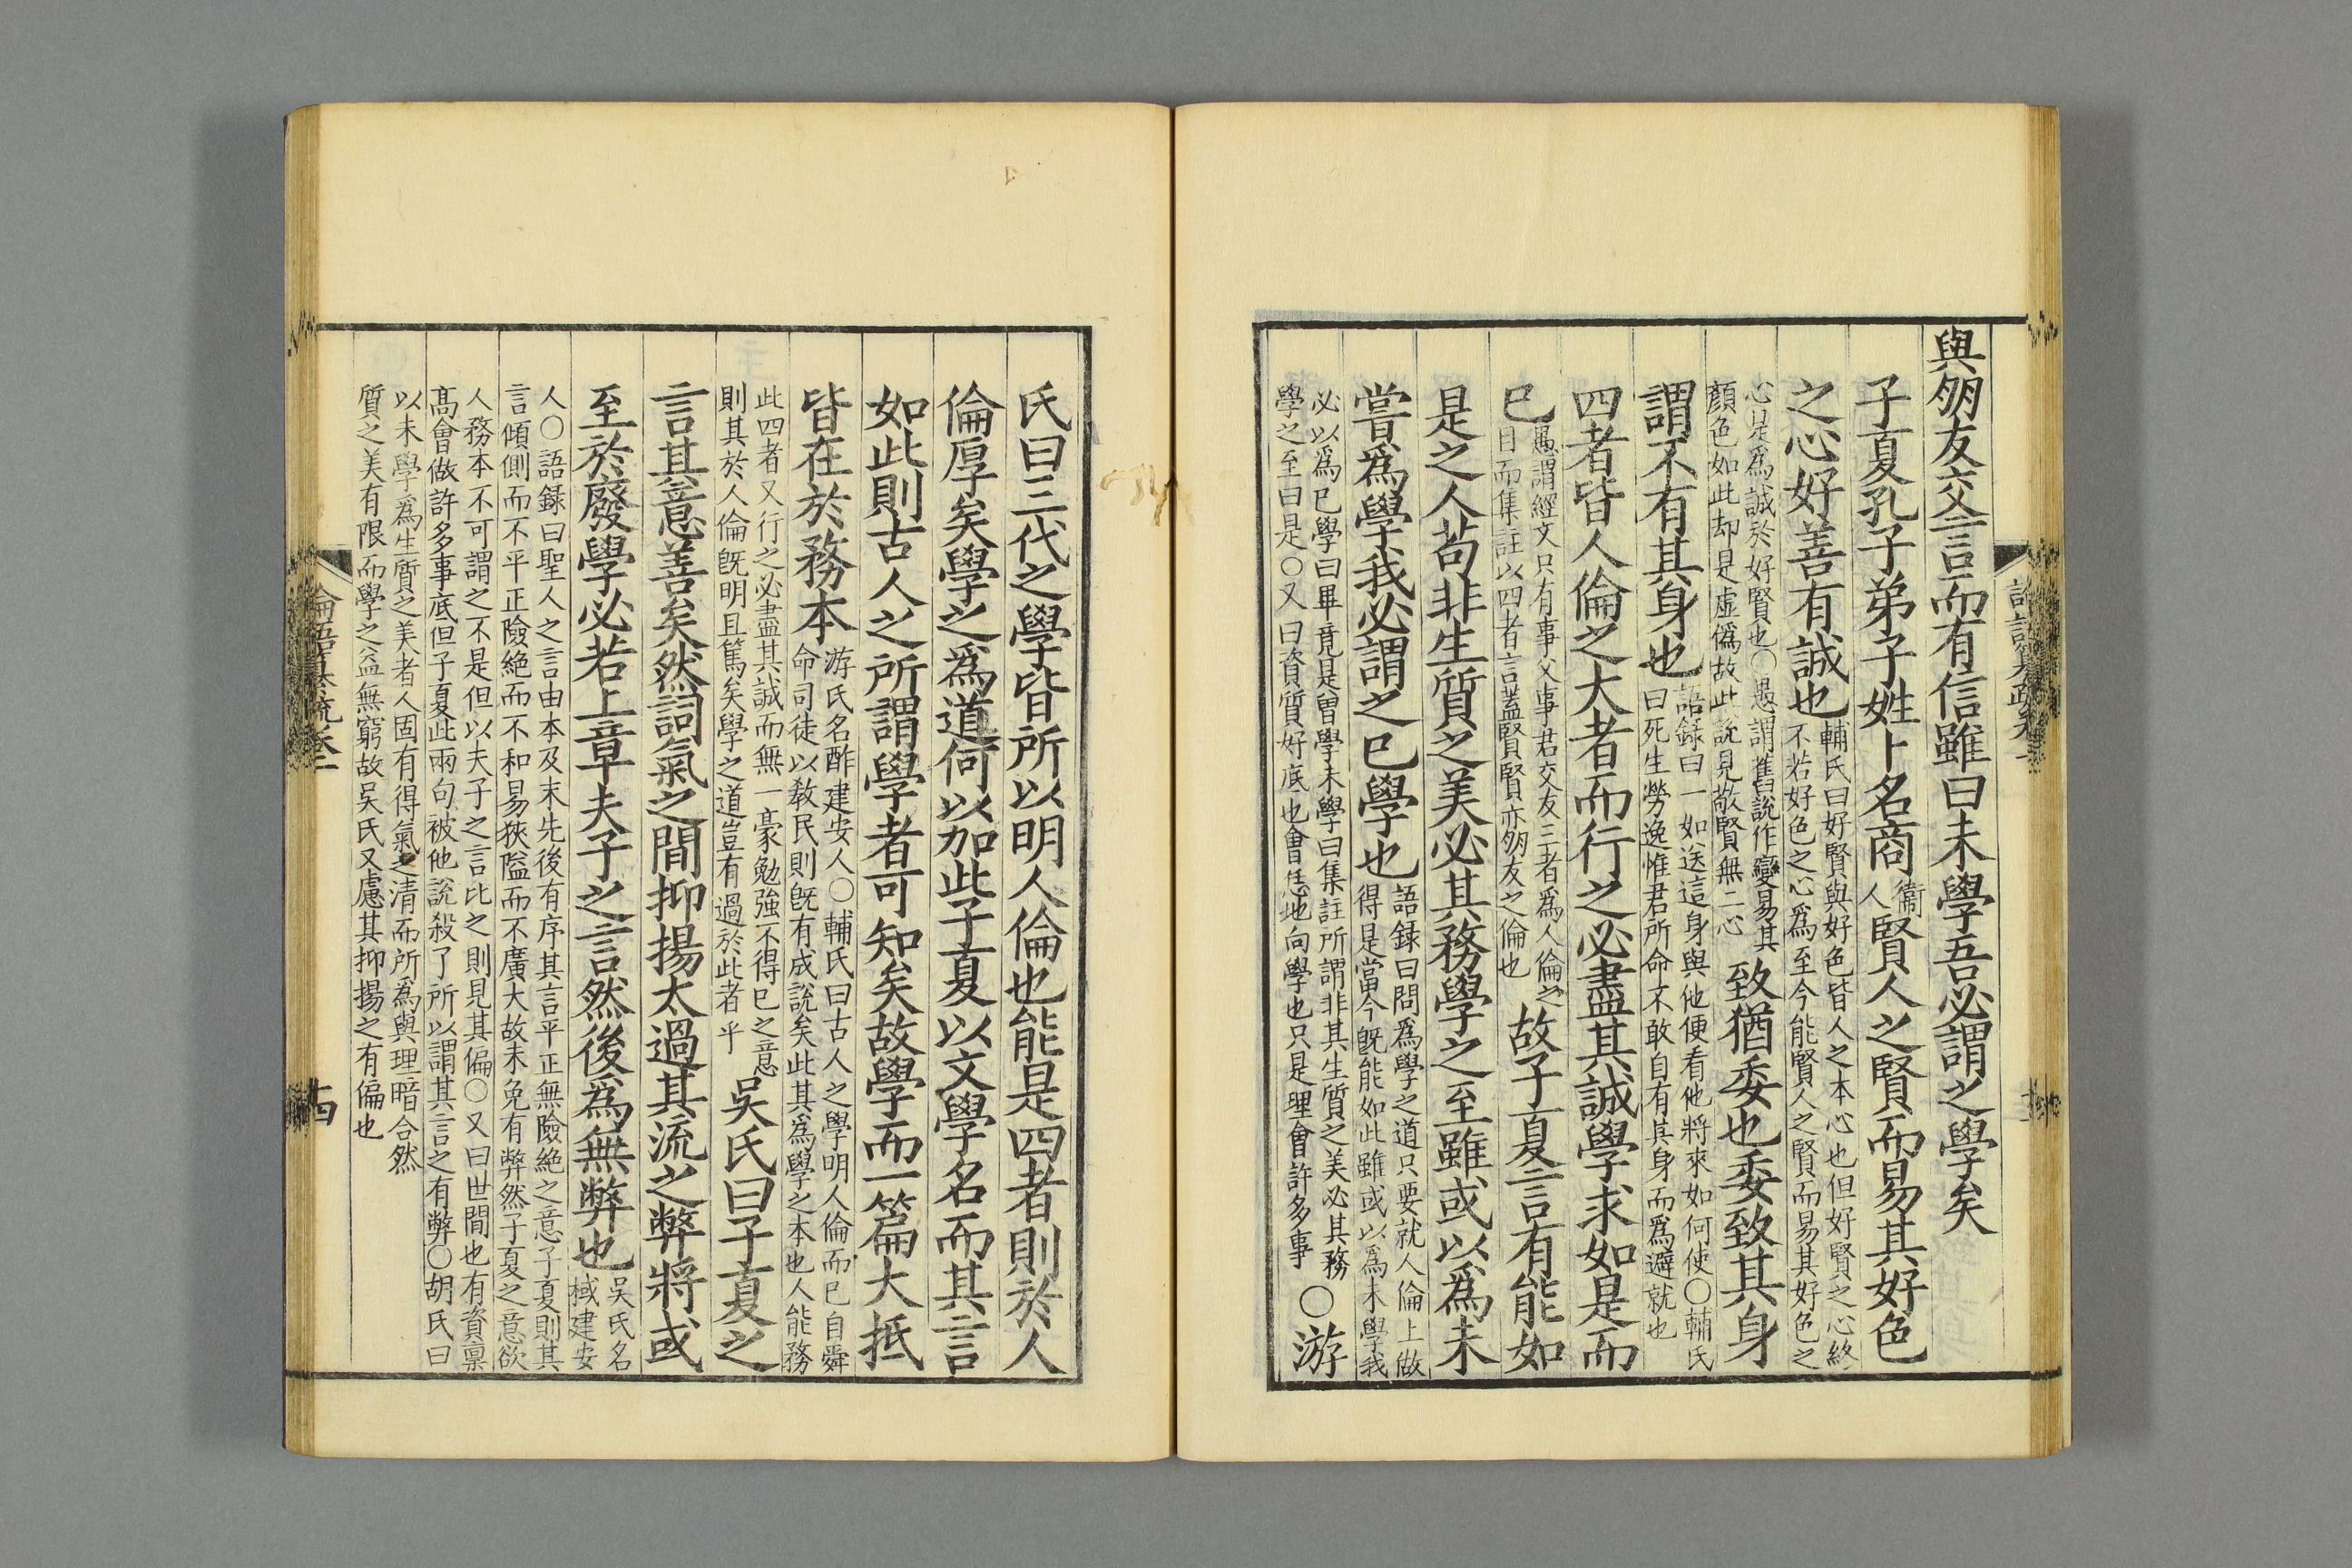 與朋友交言而有信雖曰未學吾必謂之學矣
子夏孔子弟子姓卜名商衞人賢人之賢而易其好色
之心好善有誠也輔氏曰好賢與好色皆人之本心也但好賢之心終
不若好色之心爲至今能賢人之賢而易其好色之
心是爲誠於好賢也○愚謂舊說作變易其
顏色如此却是虛僞故此說見敬賢無二心
致猶委也委致其身
謂不有其身也語録曰一如送這身與他便看他將來如何使○輔氏
曰死生勞逸惟君所命不敢自有其身而爲避就也
四者皆人倫之大者而行之必盡其誠學求如是而
已愚謂經文只有事父事君交友三者爲人倫之
目而集註以四者言蓋賢賢亦朋友之倫也
故子夏言有能如
是之人苟非生質之美必其務學之至雖或以爲未
嘗爲學我必謂之已學也語録曰問爲學之道只要就人倫上做
得是當今既能如此雖或以爲未學我
必以爲已學曰畢竟是曽學未學曰集註所謂非其生質之美必其務
學之至曰是○又曰資質好底也會恁地向學也只是理會許多事
○游
氏曰三代之學皆所以明人倫也能是四者則於人
倫厚矣學之爲道何以加此子夏以文學名而其言
如此則古人之所謂學者可知矣故學而一篇大抵
皆在於務本游氏名酢建安人○輔氏曰古人之學明人倫而已自舜
命司徒以敎民則既有成說矣此其爲學之本也人能務
此四者又行之必盡其誠而無一豪勉強不得已之意
則其於人倫既明且篤矣學之道豈有過於此者乎
吳氏曰子夏之
言其意善矣然詞氣之間抑揚太過其流之弊將或
至於廢學必若上章夫子之言然後爲無弊也吳氏名
棫建安
人○語録曰聖人之言由本及末先後有序其言平正無險絶之意子夏則其
言傾側而不平正險絶而不和易狹隘而不廣大故未免有弊然子夏之意欲
人務本不可謂之不是但以夫子之言比之則見其偏○又曰世間也有資禀
髙會做許多事底但子夏此兩句被他說殺了所以謂其言之有弊○胡氏曰
以未學爲生質之美者人固有得氣之清而所爲與理暗合然
質之美有限而學之益無窮故吳氏又慮其抑揚之有偏也
十四